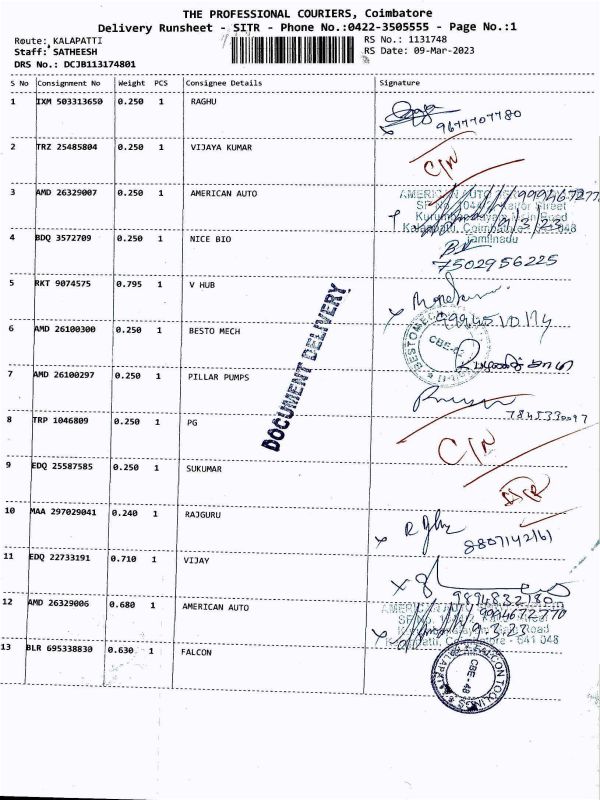 THE PROFESSIONAL COURIERS, Coimbatore
Delivery Runsheet - SITR - Phone No.:0422-3505555 - Page No.:1
Route: KALAPATTI RS No.: 1131748
Staff: SATHEESH RS Date: 09-Mar-2023
DRS No.: DCJB113174801
S No Consignment No Weight PCS Consignee Details Signature
1 IXM 503313650 0.250 1 RAGHU
9677707780
2 TRZ 25485804 0.250 1 VIJAYA KUMAR
C/N
3 AMD 26329007 0.250 1 AMERICAN AUTO
4 BDQ 3572709 0.250 1 NICE BIO
7502956225
5 RKT 9074575 0.795 1 V HUB
6 AMD 26100300 0.250 1 BESTO MECH
7 AMD 26100297 0.250 1 PILLAR PUMPS
DOCUMENT DELIVERY
8 TRP 1046809 0.250 1 PG
C/N
9 EDQ 25587585 0.250 1 SUKUMAR
10 MAA 297029041 0.240 1 RAJGURU
8807142161
11 EDQ 22733191 0.710 1 VIJAY
9894832180
12 AMD 26329006 0.680 1 AMERICAN AUTO
9994672770
13 BLR 695338830 0.630 1 FALCON
CBE - 48